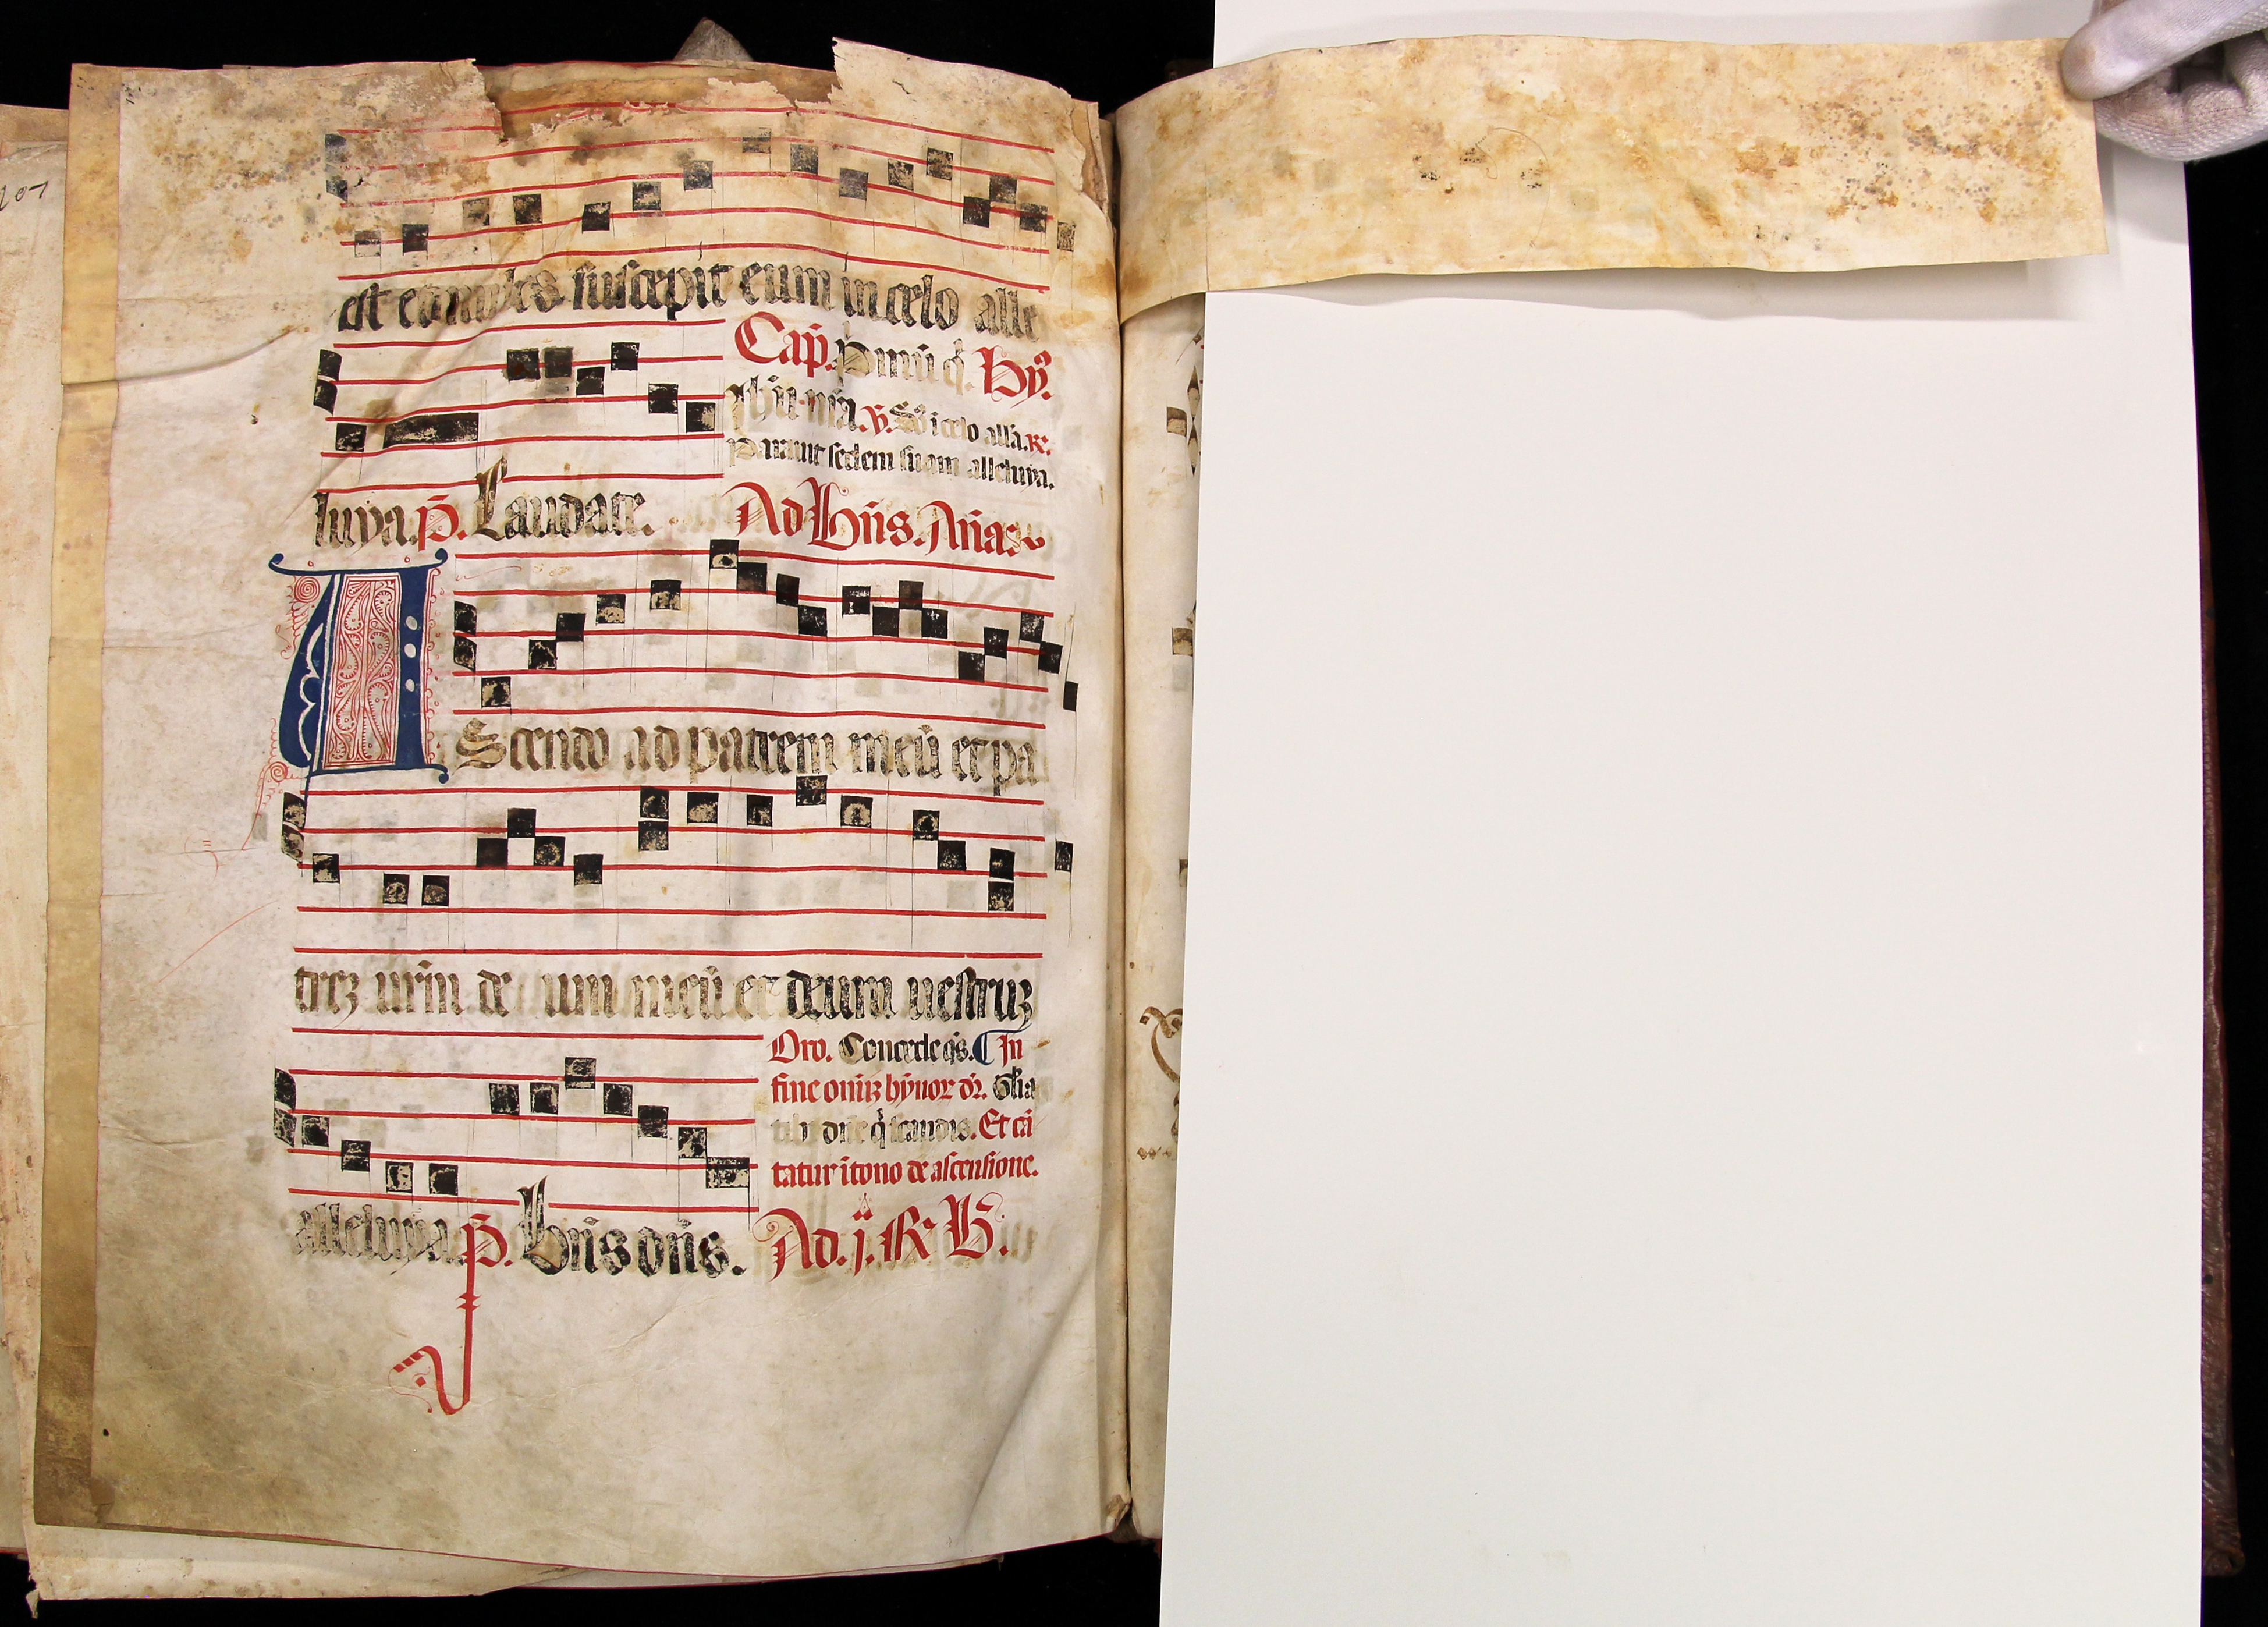 207
est et nubes suscepit eum in celo alle
Cap̄. Primū q̇. Hyꝰ.
Ihū nr̄a. ꝟ. Dñs i celo all'a. ℞.
Parauit sedem suam alleluya.
luya. p̄. Laudate. Ad Bn̄s. An̄a.
AScendo ad patrem meū et pa
treꝫ urm̄ de um meū et deum uestruꝫ
Oro. Concede qs̄. ⸿ In
fine oīuꝫ hȳnoꝝ dr̄. Gl'ia
tibi dn̄e q̇ scandis. Et cā
tatur ī tono de ascensione.
alleluya p̄. Bn̄s dn̄s. Ad. ij. ℞ B.